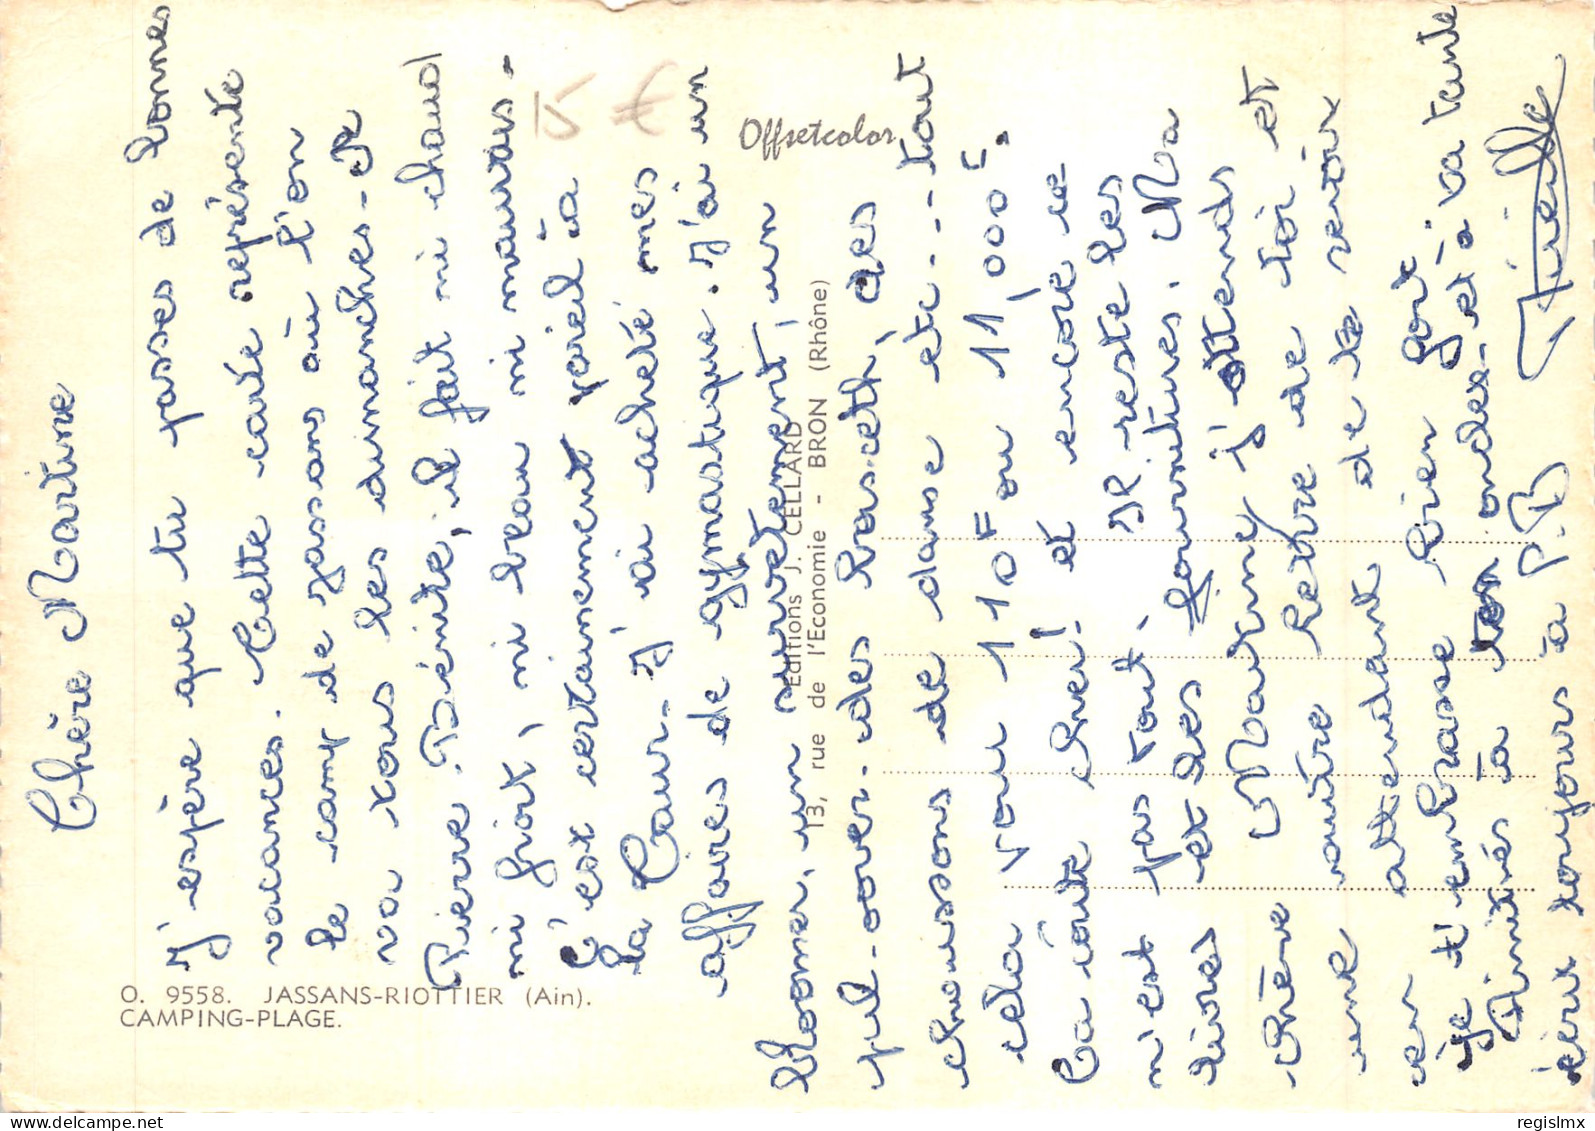 Chère Martine
J'espère que tu passes de bonnes
vacances. Cette carte représente
le camp de jassans où l'on
va tous les dimanches - A
Pierre Bénite, il fait ni chaud
ni froit, ni beau ni mauvais -
C'est certainement pareil à
la Cour - J'ai acheté mes
affaires de gymnastique. J'ai un
bloomer, un survêtement, un
pul-over - des bas-ceth, des
chaussons de danse etc -- tout
cela pour 110F ou 11,000F.
Ca coûte cher! et encore ce
n'est pas tout. Il reste les
livres et les fournitures. Ma
chère Martine j'attends
une autre lettre de toi et
en attendant de te revoir
je t'embrasse bien fort
Amitiés à ton oncle - et à ta tante
écri toujours à P.B
O. 9558. JASSANS-RIOTTIER (Ain).
CAMPING-PLAGE.
Offsetcolor
Editions J. CELLARD
13, rue de l'Economie - BRON (Rhône)
15 €
delcampe.net
regislmx